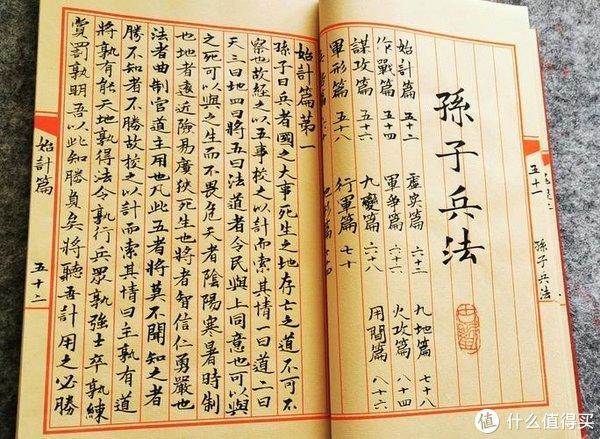 孫子兵法
五十一
孫子兵法
始計篇 五十二 虛實篇 六十三 九地篇 七十八
作戰篇 五十四 軍爭篇 六十六 火攻篇 八十四
謀攻篇 五十六 九變篇 六十八 用間篇 八十六
軍形篇 五十八 行軍篇 七十
始計篇第一
孫子曰兵者國之大事死生之地存亡之道不可不
察也故經之以五事校之以計而索其情一曰道二曰
天三曰地四曰將五曰法道者令民與上同意也可以與
之死可以與之生而不畏危天者陰陽寒暑時制
也地者遠近險易廣狹死生也將者智信仁勇嚴也
法者曲制官道主用也凡此五者將莫不聞知之者
勝不知者不勝故校之以計而索其情曰主孰有道
將孰有能天地孰得法令孰行兵眾孰強士卒孰練
賞罰孰明吾以此知勝負矣將聽吾計用之必勝
始計篇
五十二
值 什么值得买